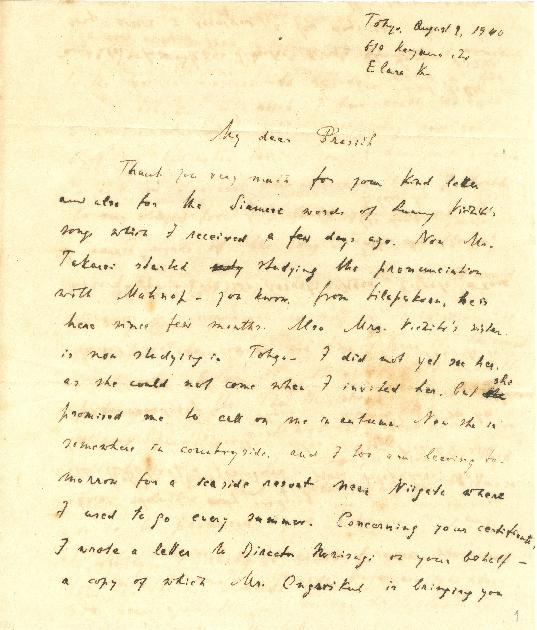 Tokyo, August 9, 1940
My dear Prasidh
Thank you very much for your kind letter
and also for the Siamese words of
songs which I received a few days ago. Now Mr.
started studying the pronunciation
with Mahnop - you know, from Silapakorn, he is
here since few months. Also Mrs. Vichitr's sister
is now studying in Tokyo - I did not yet see her,
as she could not come when I invited her, but she
promised me to call on me in autumn. Now she is
somewhere in countryside, and I too am leaving to-
morrow for a seaside resort near Niigata where
I used to go every summer. Concerning your certificate,
I wrote a letter to Director on your behalf -
a copy of which Mr. is bringing you
1